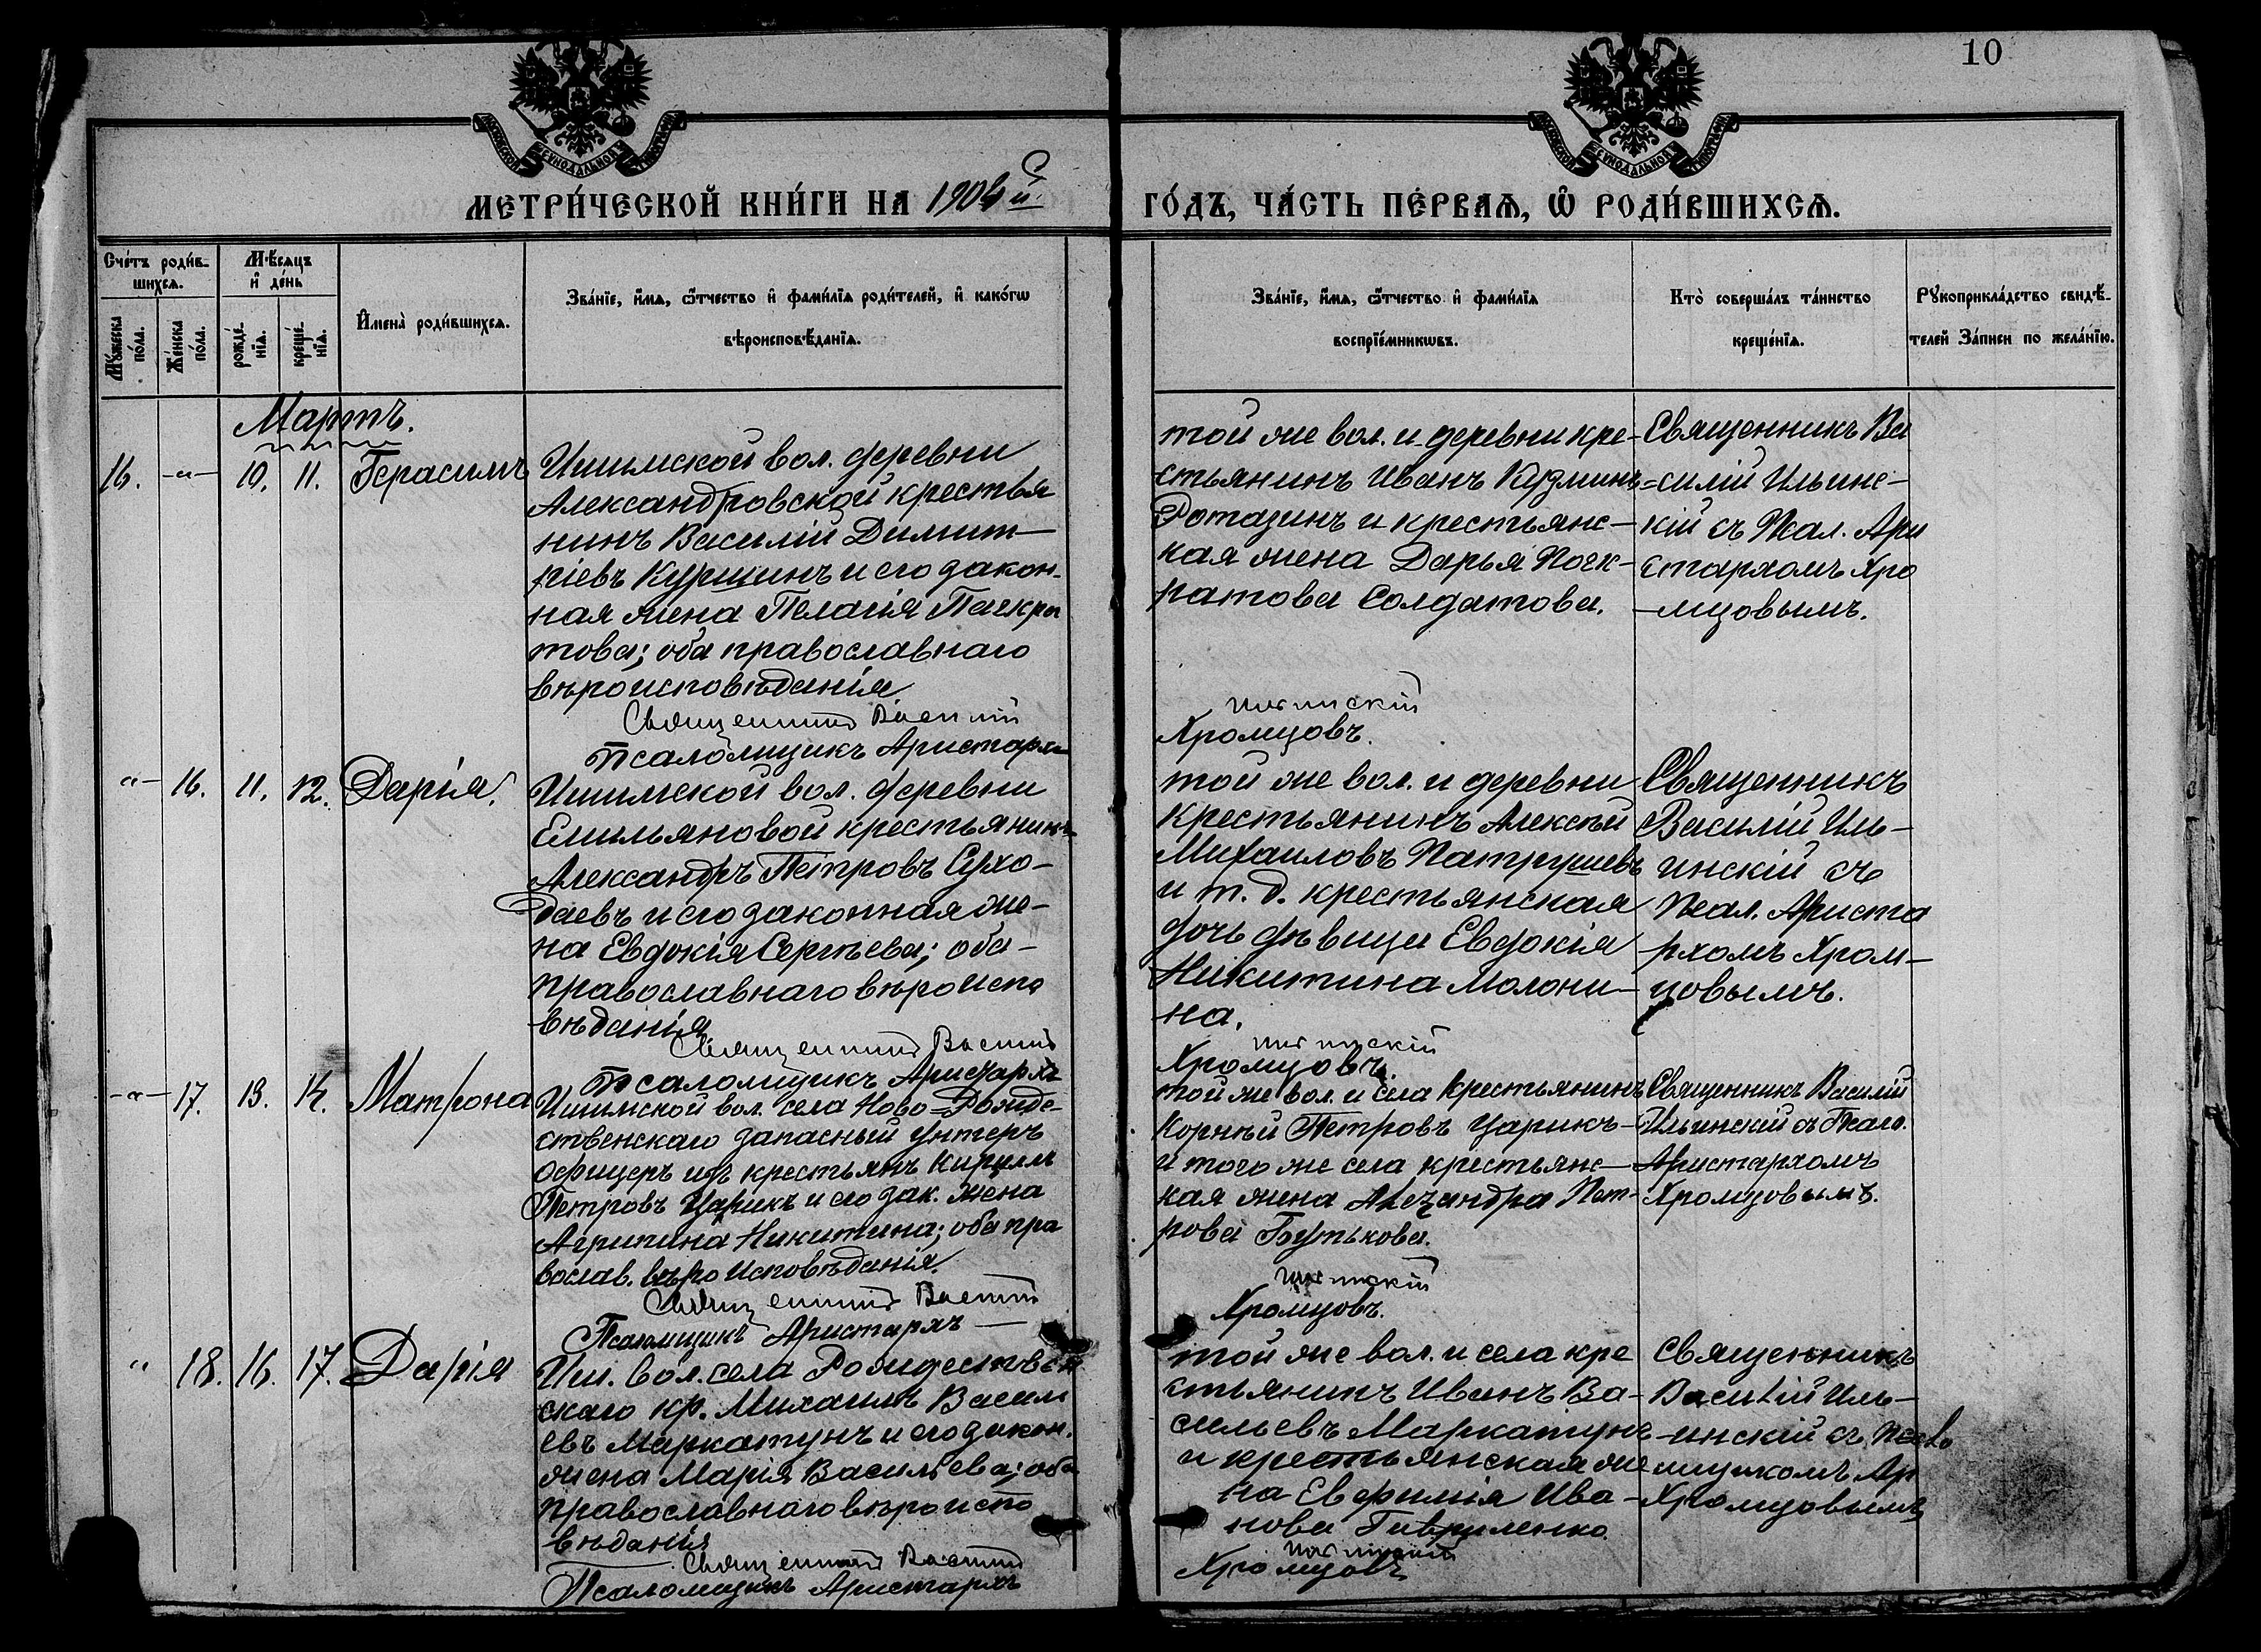 10
МЕТРИ́ЧЕСКОЙ КНИ́ГИ НА 1904й. ГО́ДЪ, ЧА́СТЬ ПЕ́РВАѦ, Ѡ РОДИ́ВШИХСѦ.
Сче́тъ роди́вшихсѧ.
Мꙋ́жеска по́ла.
Же́нска по́ла.
Мѣ́сѧцъ и҆ де́нь
рожде́нїѧ.
креще́нїѧ.
И҆мена̀ роди́вшихсѧ.
Зва́нїе, и҆́мѧ, ѻ҆́тчество и҆ фами́лїѧ роди́телей, и҆ како́гѡ
вѣроисповѣ́данїѧ.
Зва́нїе, и҆́мѧ, ѻ҆́тчество и҆ фами́лїѧ
воспрїе́мникѡвъ.
Кто̀ соверша́лъ та́инство
креще́нїѧ.
Рꙋкоприкла́дство свидѣ́-
телей За́писи по жела́нїю.
Мартъ.
16. -„- 10. 11. Герасимъ
Ишимской вол. деревни
Александровской крестья
нинъ Василій Димит-
ріевъ Куршинъ и его закон-
ная жена Пелагія Панкра
това; оба православнаго
вѣроисповѣданія
Священникъ Василій
Псаломщикъ Аристархъ
той же вол. и деревни кре-
стьянинъ Иванъ Кузминъ
и крестьянс-
кая жена Дарья Панк-
ратова Солдатова.
Ильинскій
Хромцовъ.
Священникъ Ва
силій Ильинс-
кій съ Псал. Ари
стархомъ Хро
-мцовымъ.
„- 16. 11. 12. Дарія.
Ишимской вол. деревни
Емильяновой крестьянинъ
Александръ Петровъ Сухо-
даевъ и его законная же-
на Евдокія Сергѣева; оба-
православнаго вѣроиспо
вѣданія
Священникъ Василій
Псаломщикъ Аристархъ
той же вол. и деревни
крестьянинъ Алексѣй
Михаиловъ Патрушевъ
и т. д. крестьянская
дочь дѣвица Евдокія
Никитина Молони-
на.
Ильинскій
Хромцовъ.
Священникъ
Василій Иль-
инскій съ
Псал. Ариста
рхомъ Хром-
цовымъ.
-„- 17. 13. 14. Матрона
Ишимской вол. села Ново=Рожде-
ственскаго запасный унтеръ
офицеръ изъ крестьянъ Кириллъ
Петровъ Царикъ и его зак. жена
Агрипина Никитина; оба пра
вослав. вѣроисповѣданія.
Священникъ Василій
Псаломщикъ Аристархъ
той же вол. и села крестьянинъ
Корнѣй Петровъ Царикъ-
и того же села крестьянс-
кая жена Александра Пет-
рова Бутькова.
Ильинскій
Хромцовъ.
Священникъ Василій
Ильинскій съ Псало.
Аристархомъ
Хромцовымъ.
„ 18. 16. 17. Дарія
Иш. вол. села Рождествен
скаго кр. Михаилъ Василь
евъ Маркатунъ и его закон.
жена Марія Васильева; оба
православнаго вѣроиспо
вѣданія
Священникъ Василій
Псаломщикъ Аристархъ
той же вол. и села кре
стьянинъ Иванъ Ва-
сильевъ Маркатунъ
и крестьянская же
на Евфимія Ива-
нова Гавриленко
Ильинскій
Хромцовъ
Священникъ
Василій Иль-
инскій съ Псало
мщикомъ Ар
Хромцовымъ